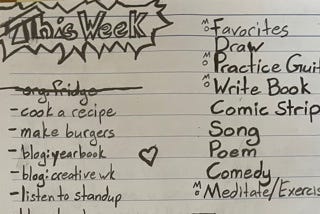 This Week
- org. fridge
- cook a recipe
- make burgers
- blog: yearbook
- blog: creative wk
- listen to standup
Favorites
Draw
Practice Guit
Write Book
Comic Strip
Song
Poem
Comedy
Meditate/Exercis